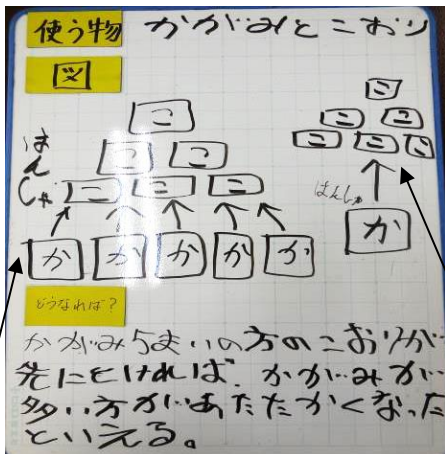 使う物 かがみとこおり
図
こ
ここ
こここ
はんしゃ
かかかかか
こ
ここ
こここ
はんしゃ
か
どうなれば?
かがみ5まいの方のこおりが
先にとければ、かがみが
多い方があたたかくなった
といえる。